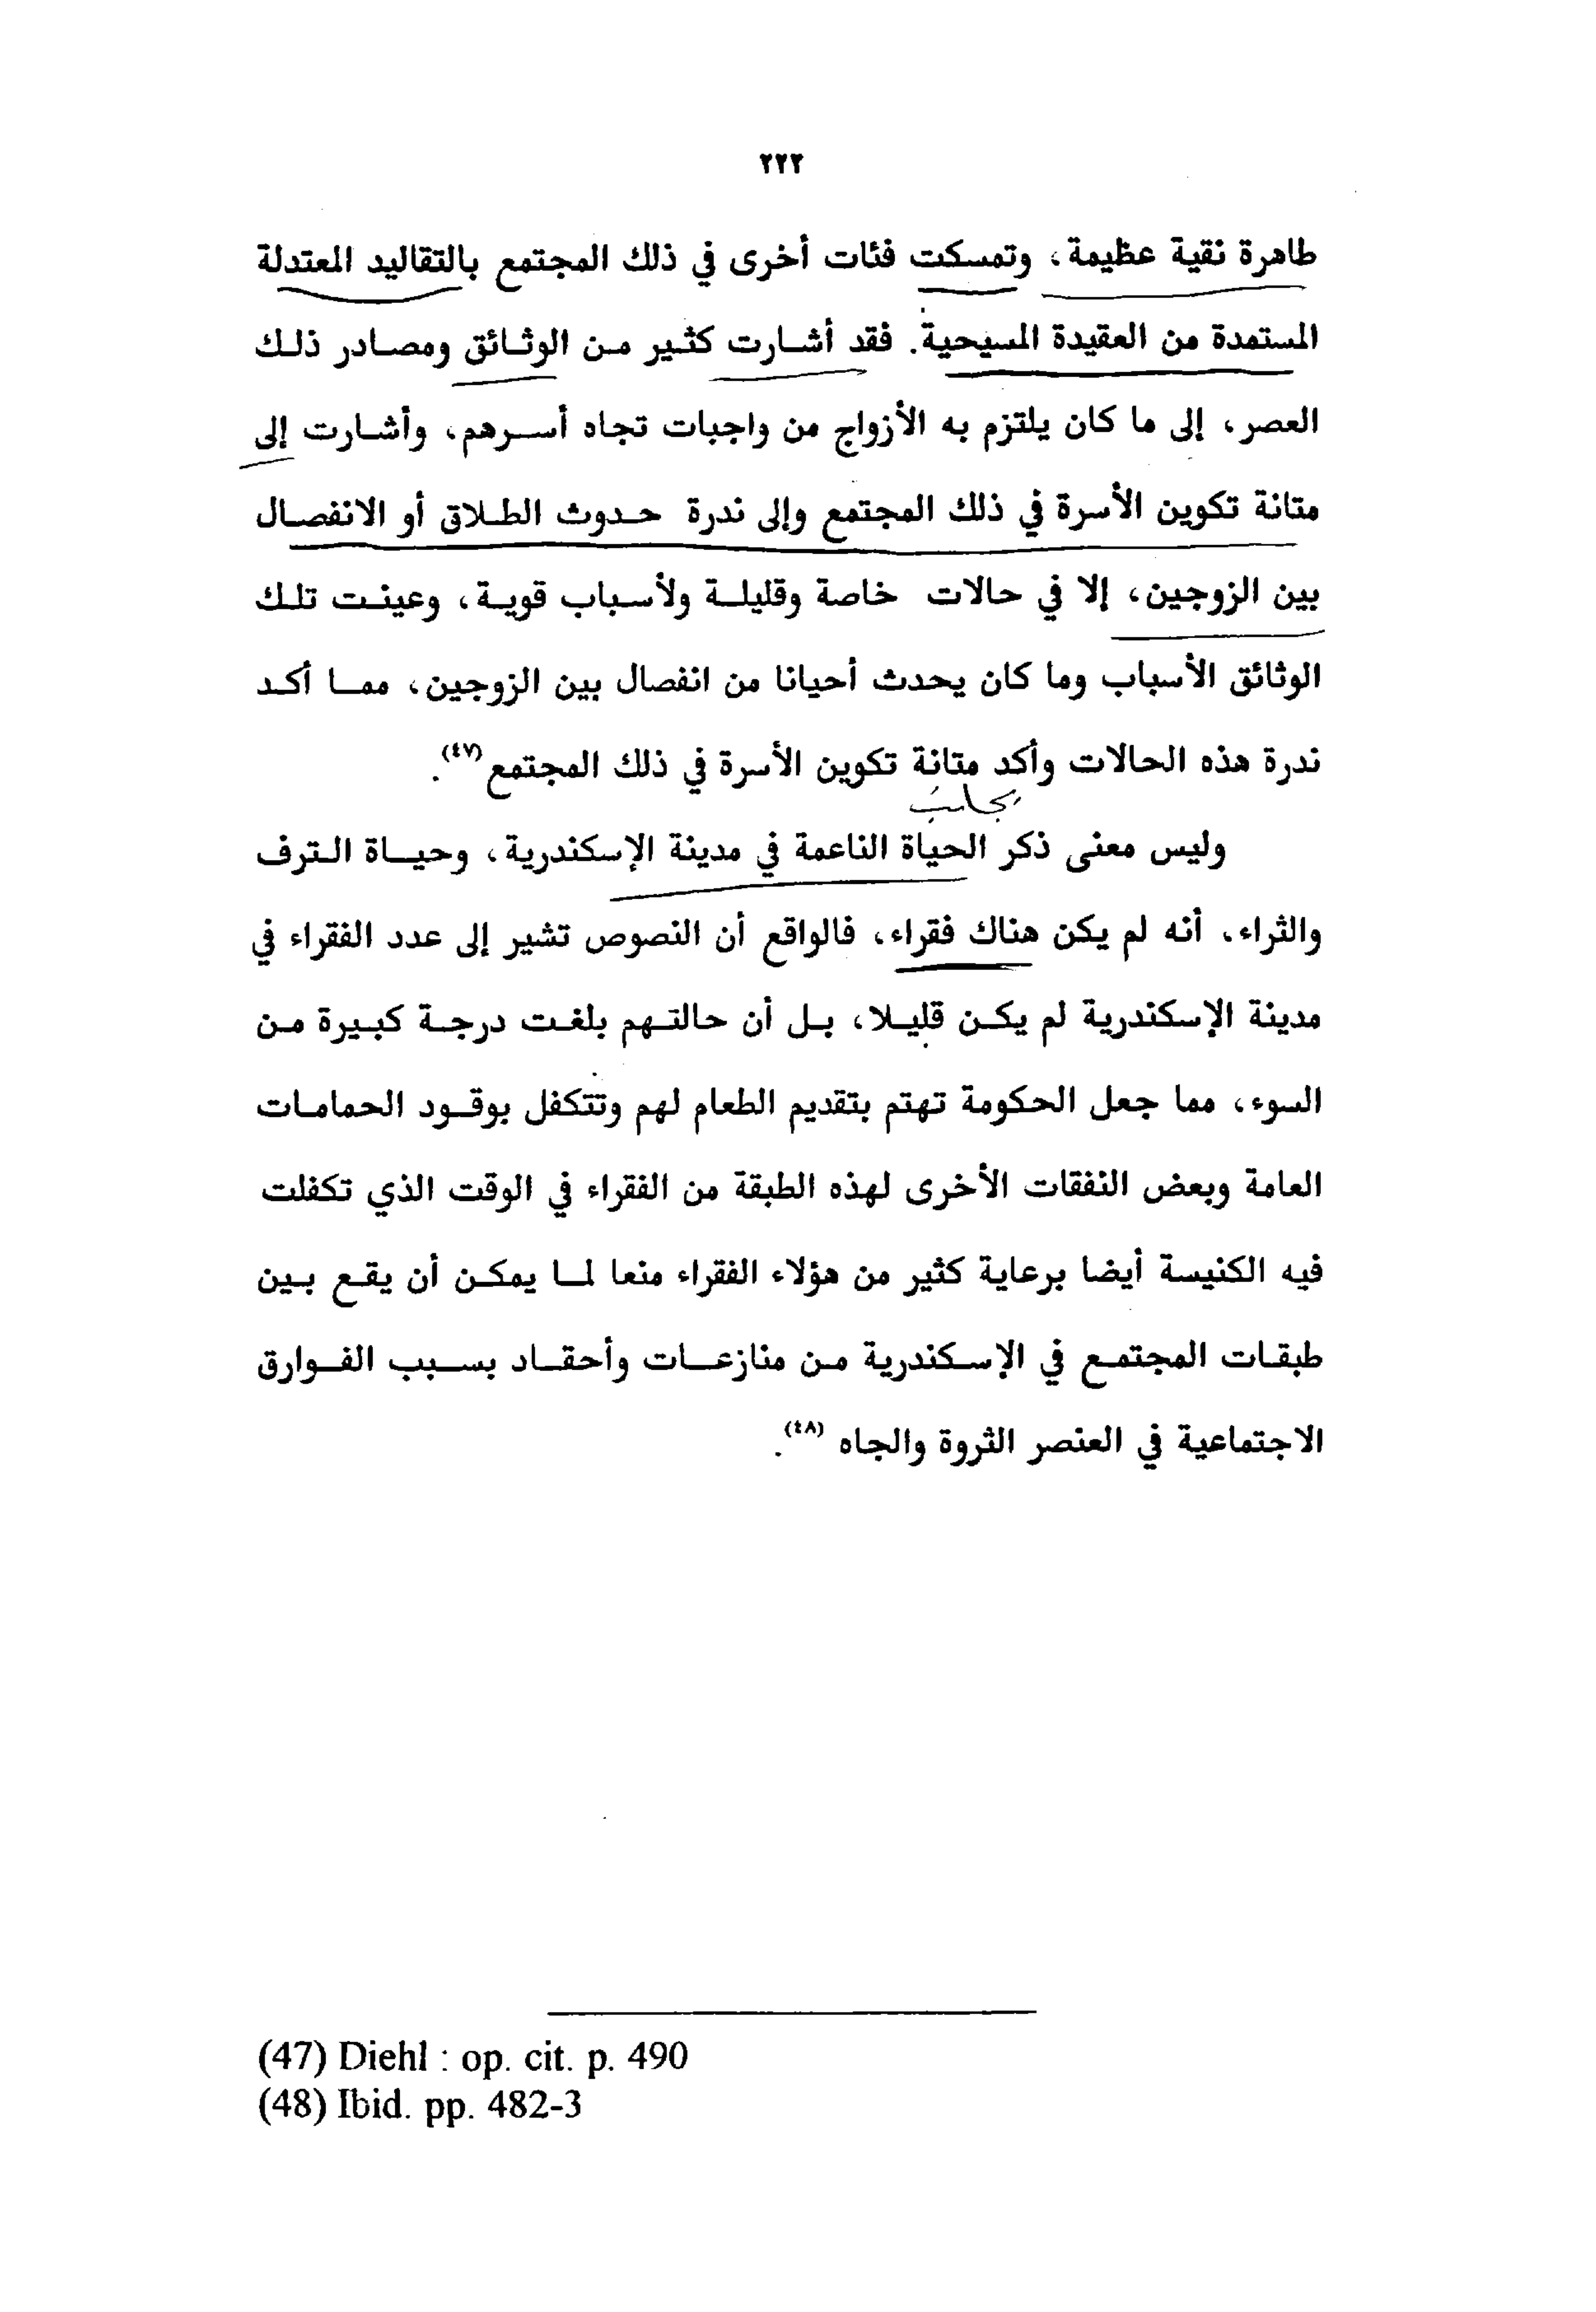 ٢٢٢
طاهرة نقية عظيمة، وتمسكت فئات أخرى في ذلك المجتمع بالتقاليد المعتدلة
المستمدة من العقيدة المسيحية. فقد أشارت كثير من الوثائق ومصادر ذلك
العصر، إلى ما كان يلتزم به الأزواج من واجبات تجاه أسرهم، وأشارت إلى
متانة تكوين الأسرة في ذلك المجتمع وإلى ندرة حدوث الطلاق أو الانفصال
بين الزوجين، إلا في حالات خاصة وقليلة ولأسباب قوية، وعينت تلك
الوثائق الأسباب وما كان يحدث أحيانا من انفصال بين الزوجين، مما أكد
ندرة هذه الحالات وأكد متانة تكوين الأسرة في ذلك المجتمع(٤٧).
بجانب
وليس معنى ذكر الحياة الناعمة في مدينة الإسكندرية، وحياة الترف
والثراء، أنه لم يكن هناك فقراء، فالواقع أن النصوص تشير إلى عدد الفقراء في
مدينة الإسكندرية لم يكن قليلا، بل أن حالتهم بلغت درجة كبيرة من
السوء، مما جعل الحكومة تهتم بتقديم الطعام لهم وتتكفل بوقود الحمامات
العامة وبعض النفقات الأخرى لهذه الطبقة من الفقراء في الوقت الذي تكفلت
فيه الكنيسة أيضا برعاية كثير من هؤلاء الفقراء منعا لما يمكن أن يقع بين
طبقات المجتمع في الإسكندرية من منازعات وأحقاد بسبب الفوارق
الاجتماعية في العنصر الثروة والجاه (٤٨).
(47) Diehl : op. cit. p. 490
(48) Ibid. pp. 482-3